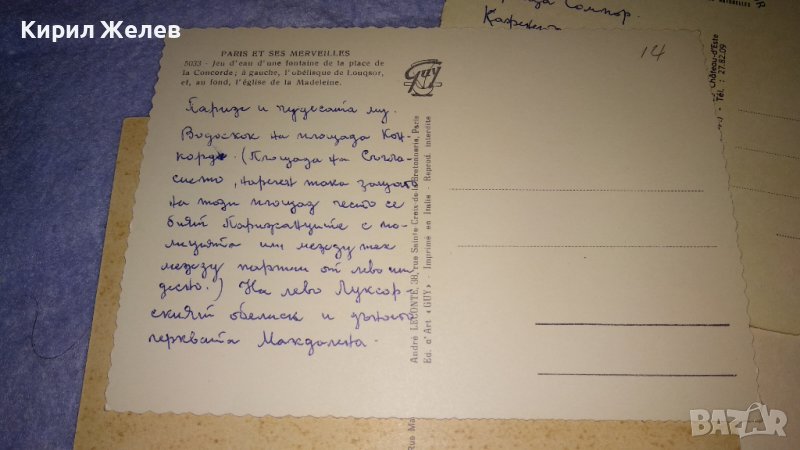 Кирил Желев
PARIS ET SES MERVEILLES
5033 - Jeu d'eau d'une fontaine de la place de
la Concorde; à gauche, l'obélisque de Louqsor,
et, au fond, l'église de la Madeleine.
GUY
14
Париж и чудесата му.
Водоскок на площада Кон-
корд. (Площада на Съгла-
сието, наречен така защото
на този площад често се
бият Парижаните с по-
лицията или между тях
между партии от лево или
десно.) На лево Луксор-
ският обелиск и
църквата Магдалена.
André LECONTE, 38, rue Sainte Croix-de-la-Bretonnerie, Paris
Ed. d'Art «GUY» - Imprimé en Italie - Reprod. interdite
Château-d'Este
Tél. : 27.82.09
Rue Ma
BAZAR